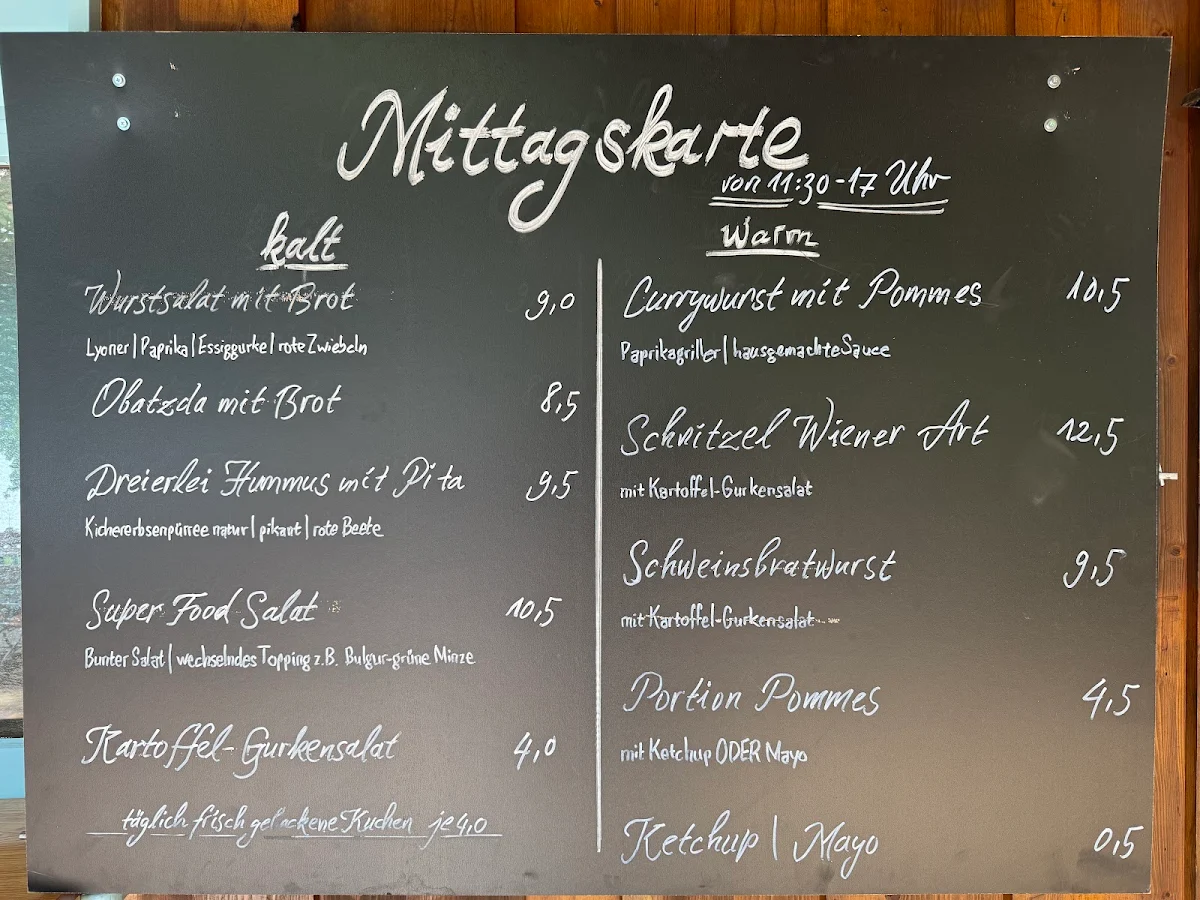 Mittagskarte
von 11:30-17 Uhr
kalt
Wurstsalat mit Brot 9,0
Lyoner | Paprika | Essiggurke | rote Zwiebeln
Obatzda mit Brot 8,5
Dreierlei Hummus mit Pita 9,5
Kichererbsenpürree natur | pikant | rote Beete
Super Food Salat 10,5
Bunter Salat | wechselndes Topping z.B. Bulgur-grüne Minze
Kartoffel-Gurkensalat 4,0
täglich frisch gebackene Kuchen je 4,0
Warm
Currywurst mit Pommes 10,5
Paprikagriller | hausgemachte Sauce
Schnitzel Wiener Art 12,5
mit Kartoffel-Gurkensalat
Schweinsbratwurst 9,5
mit Kartoffel-Gurkensalat
Portion Pommes 4,5
mit Ketchup ODER Mayo
Ketchup | Mayo 0,5